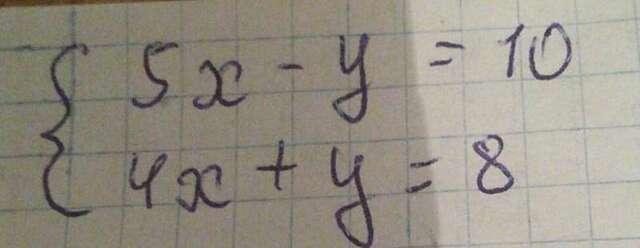 5x - y = 10
4x + y = 8